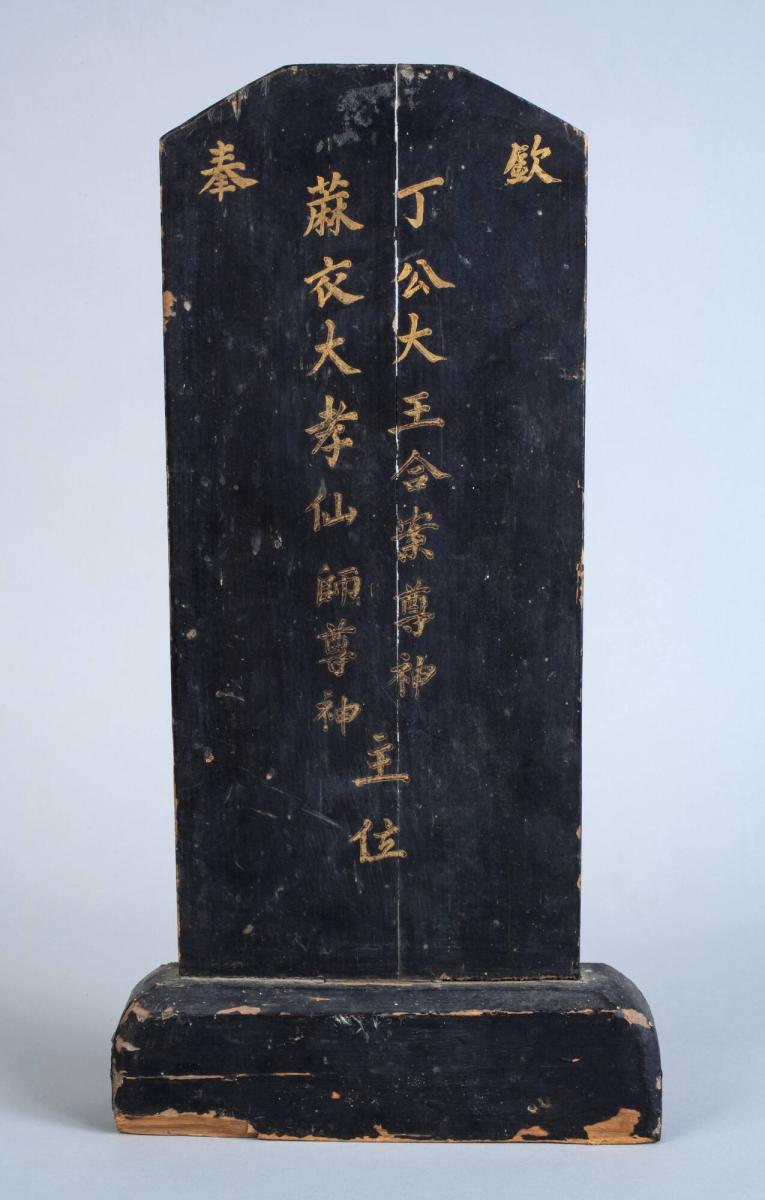 欽
奉
丁公大王合案尊神
蔴衣大孝仙師尊神
主位